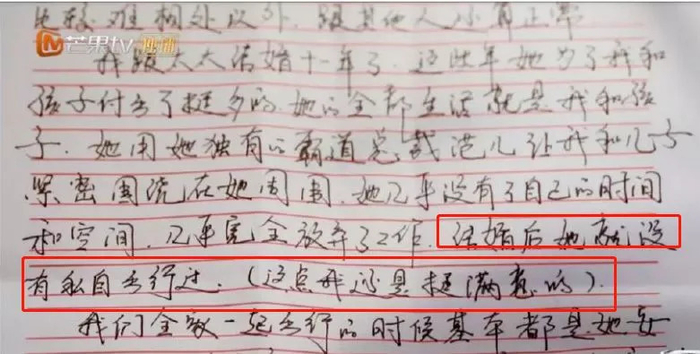 比较难相处以外，跟其他人还算正常
芒果tv
我跟太太结婚十一年了，这些年她为了我和
孩子付出了挺多的，她的全部生活就是我和孩
子，她用她独有的霸道总裁范儿让我和儿子
紧密围绕在她周围，她几乎没有了自己的时间
和空间，几乎完全放弃了工作，结婚后她就没
有私自出行过，（这点我还是挺满意的）.
我们全家一起出行的时候基本都是她安